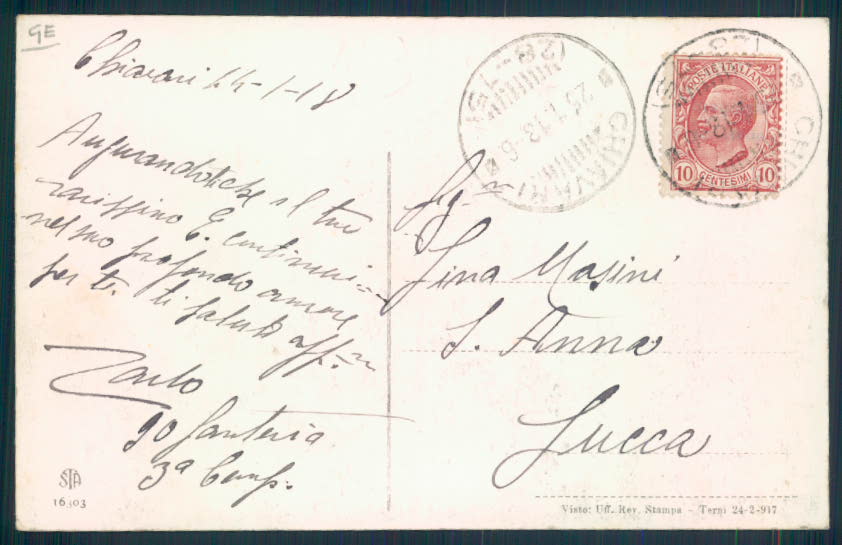 GE
Chiavari 24-1-18
Augurandoti che il tuo
carissimo G. continui
nel suo profondo amore
per te. ti saluto aff.mo
Carlo
90 fanteria
3a Comp.
CHIAVARI
25.1.18-6
POSTE ITALIANE
10 CENTESIMI 10
Sig.na
Gina Masini
S. Anna
Lucca
STA
16303
Visto: Uff. Rev. Stampa - Terni 24-2-917